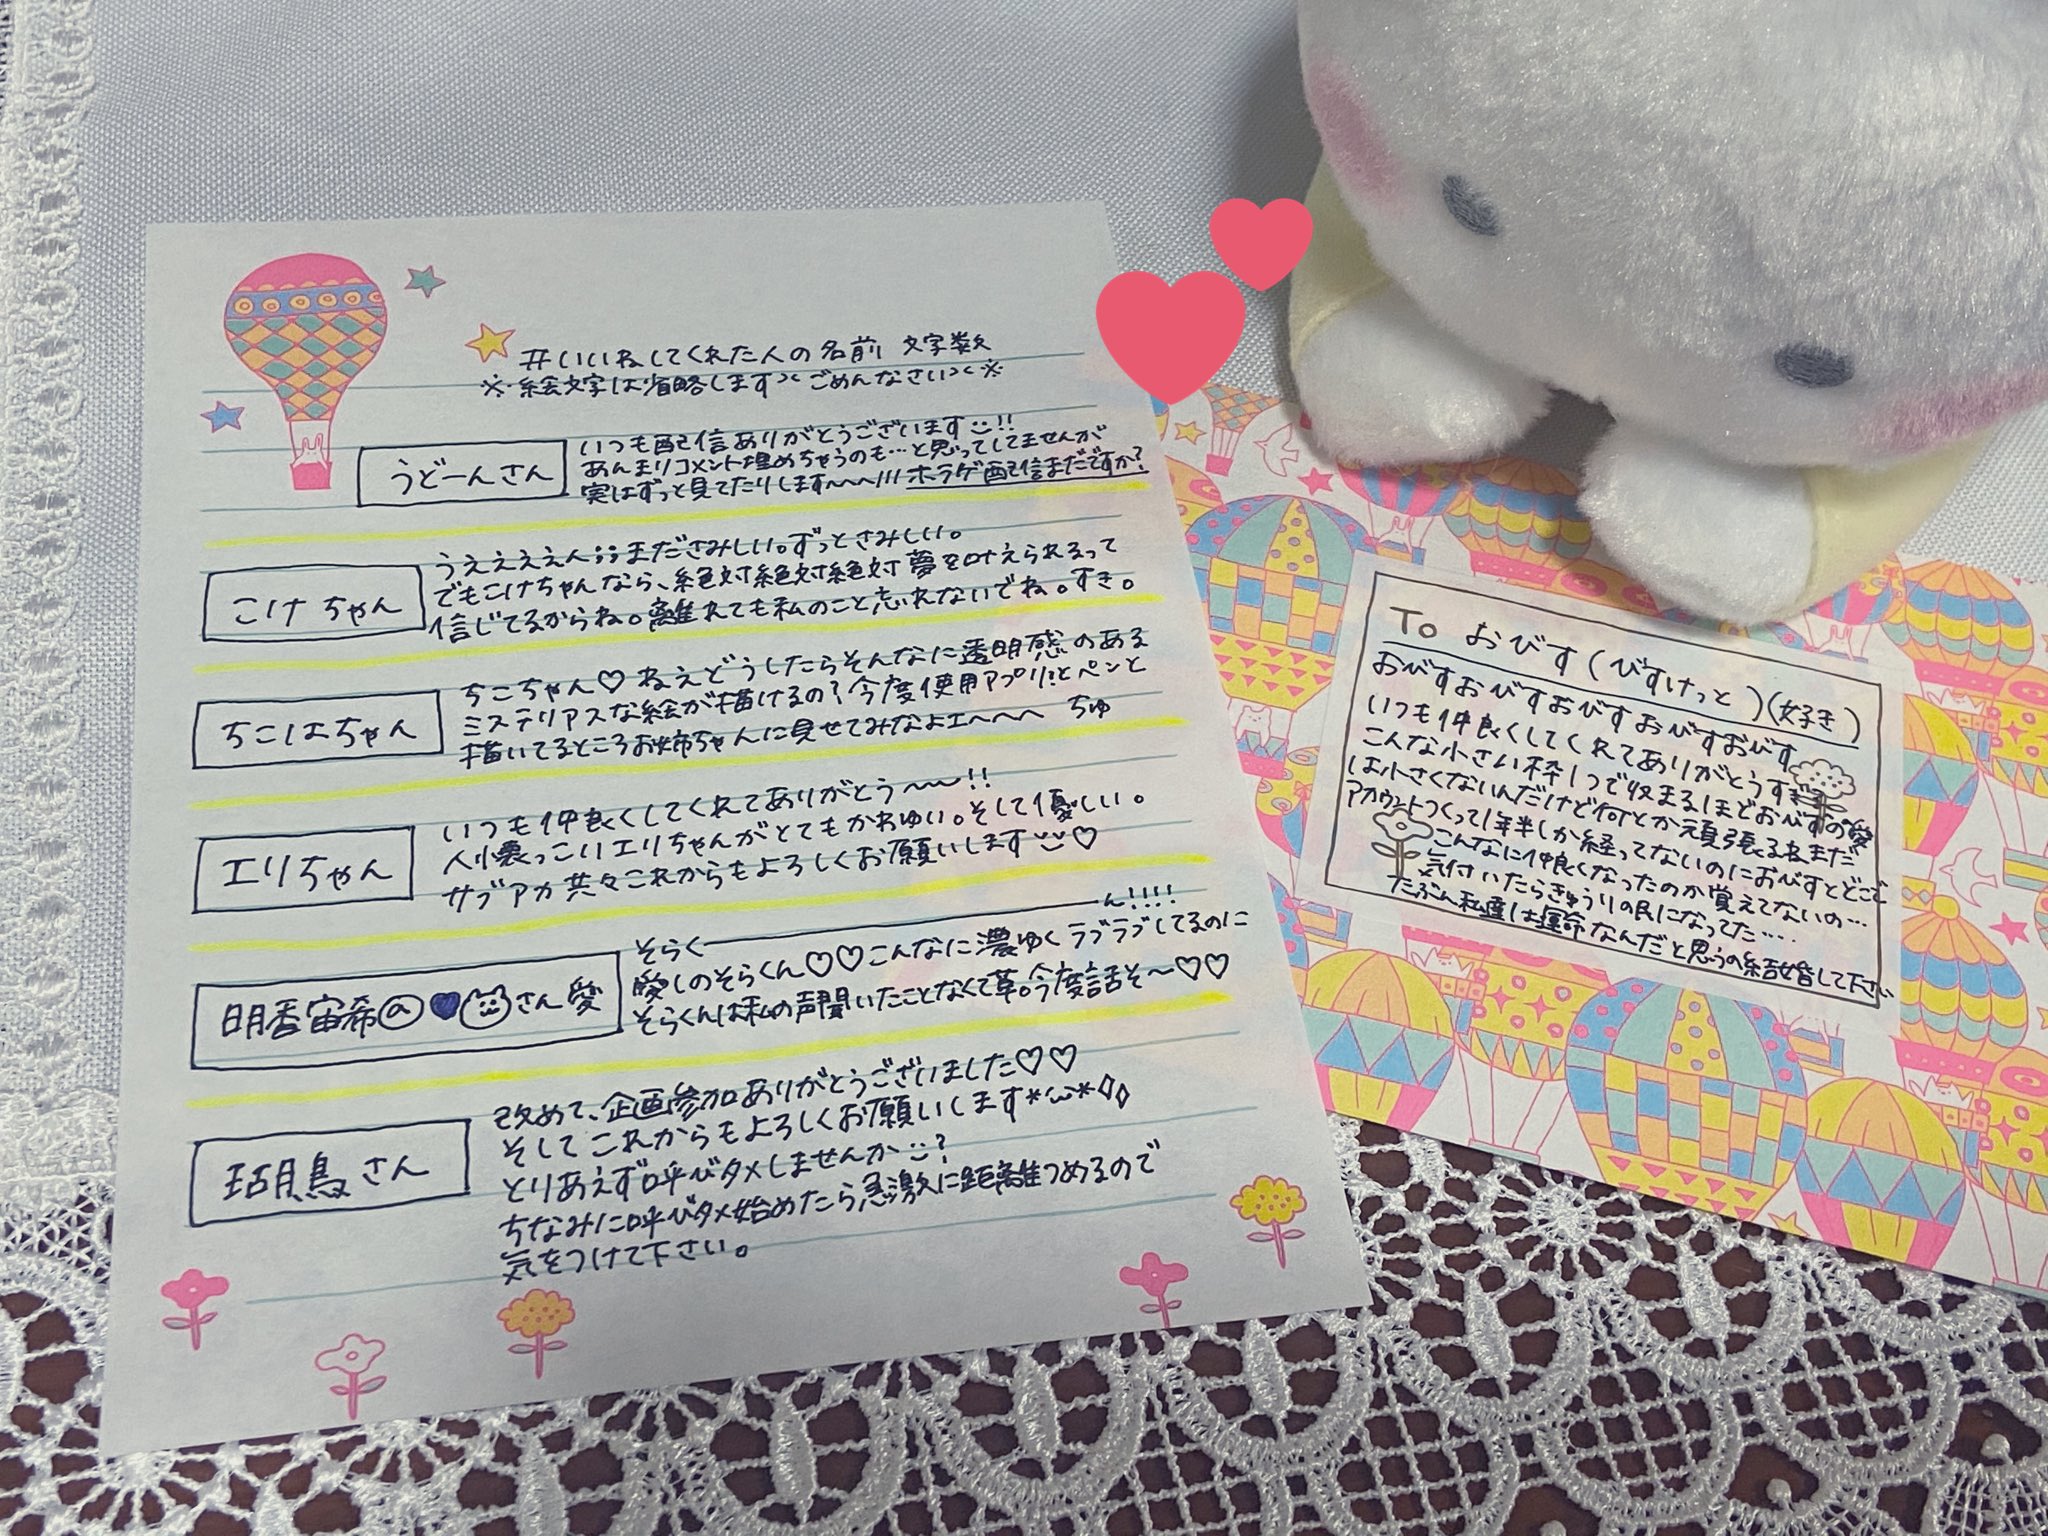 #いいねしてくれた人の名前 文字数
※絵文字は省略します>< ごめんなさい><※
うどーんさん
いつも配信ありがとうございます!!
あんまりコメント埋めちゃうのも…と思ってしてませんが
実はずっと見てたりします〜〜〜!!! ホラゲ配信まだですか?
こけちゃん
うええええん;;まださみしい。ずっとさみしい。
でもこけちゃんなら、絶対絶対絶対夢を叶えられるって
信じてるからね。離れても私のこと忘れないでね。すき。
ちこはちゃん
ちこちゃん♡ねえどうしたらそんなに透明感のある
ミステリアスな絵が描けるの?今度使用アプリとペンと
描いてるところお姉ちゃんに見せてみなよエ〜〜〜 ちゅ
エリちゃん
いつも仲良くしてくれてありがとう〜〜!!
人懐っこいエリちゃんがとてもかわゆい。そして優しい。
サブアカ共々これからもよろしくお願いします♡
明香宙希@さん愛
そらく――――ん!!!!
愛しのそらくん♡♡こんなに濃ゆくラブラブしてるのに
そらくんは私の声聞いたことなくて草。今度話そ〜♡♡
瑚鳥さん
改めて、企画参加ありがとうございました♡♡
そしてこれからもよろしくお願いします*'ω'*
とりあえず呼びタメしませんか?
ちなみに呼びタメ始めたら急激に距離つめるので
気をつけて下さい。
To おびす(びすけっと)(好き)
おびすおびすおびすおびすおびす
いつも仲良くしてくれてありがとうすぎ
こんな小さい枠1つで収まるほどおびすの愛
は小さくないんだけど何とか頑張るねまだ
アカウントつくって1年半しか経ってないのにおびすとどこで
こんなに仲良くなったのか覚えてないの…
気付いたらきゅうりの民になってた….
たぶん私達は運命なんだと思うの結婚して下さい